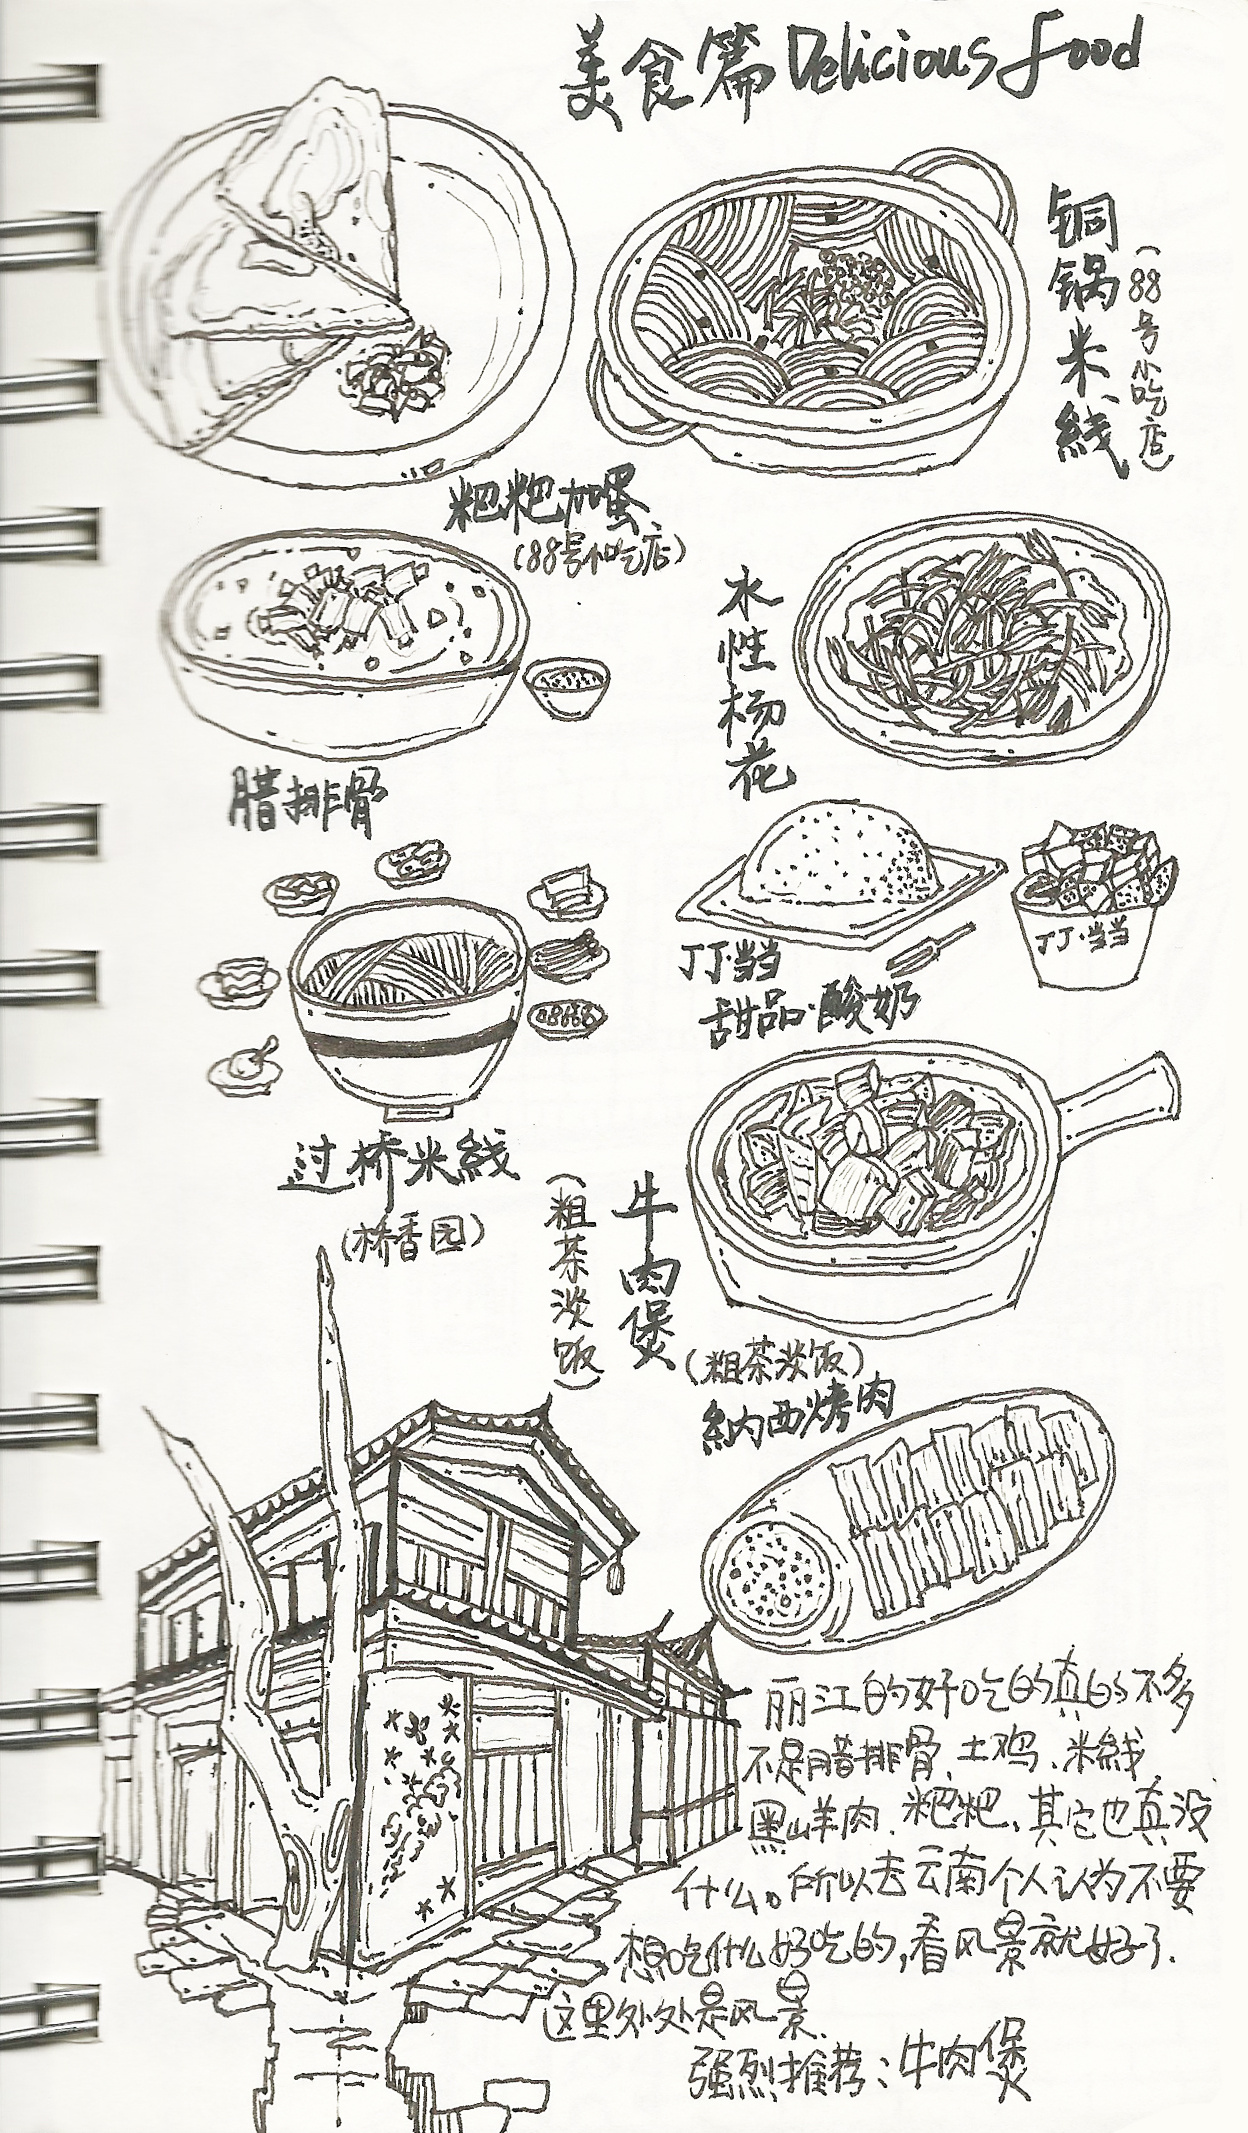 美食篇 Delicious food
铜锅米線
(88号小吃店)
粑粑加蛋
(88号小吃店)
水性杨花
腊排骨
丁丁·当当
甜品·酸奶
丁丁·当当
过桥米線
(桥香园)
牛肉煲
(粗茶淡饭)
(粗茶淡饭)
納西烤肉
丽江的好吃的真的不多
不是腊排骨、土鸡、米線、
黑山羊肉、粑粑、其它也真没
什么。所以去云南个人认为不要
想吃什么好吃的,看风景就好了.
这里处处是风景.
强烈推荐:牛肉煲